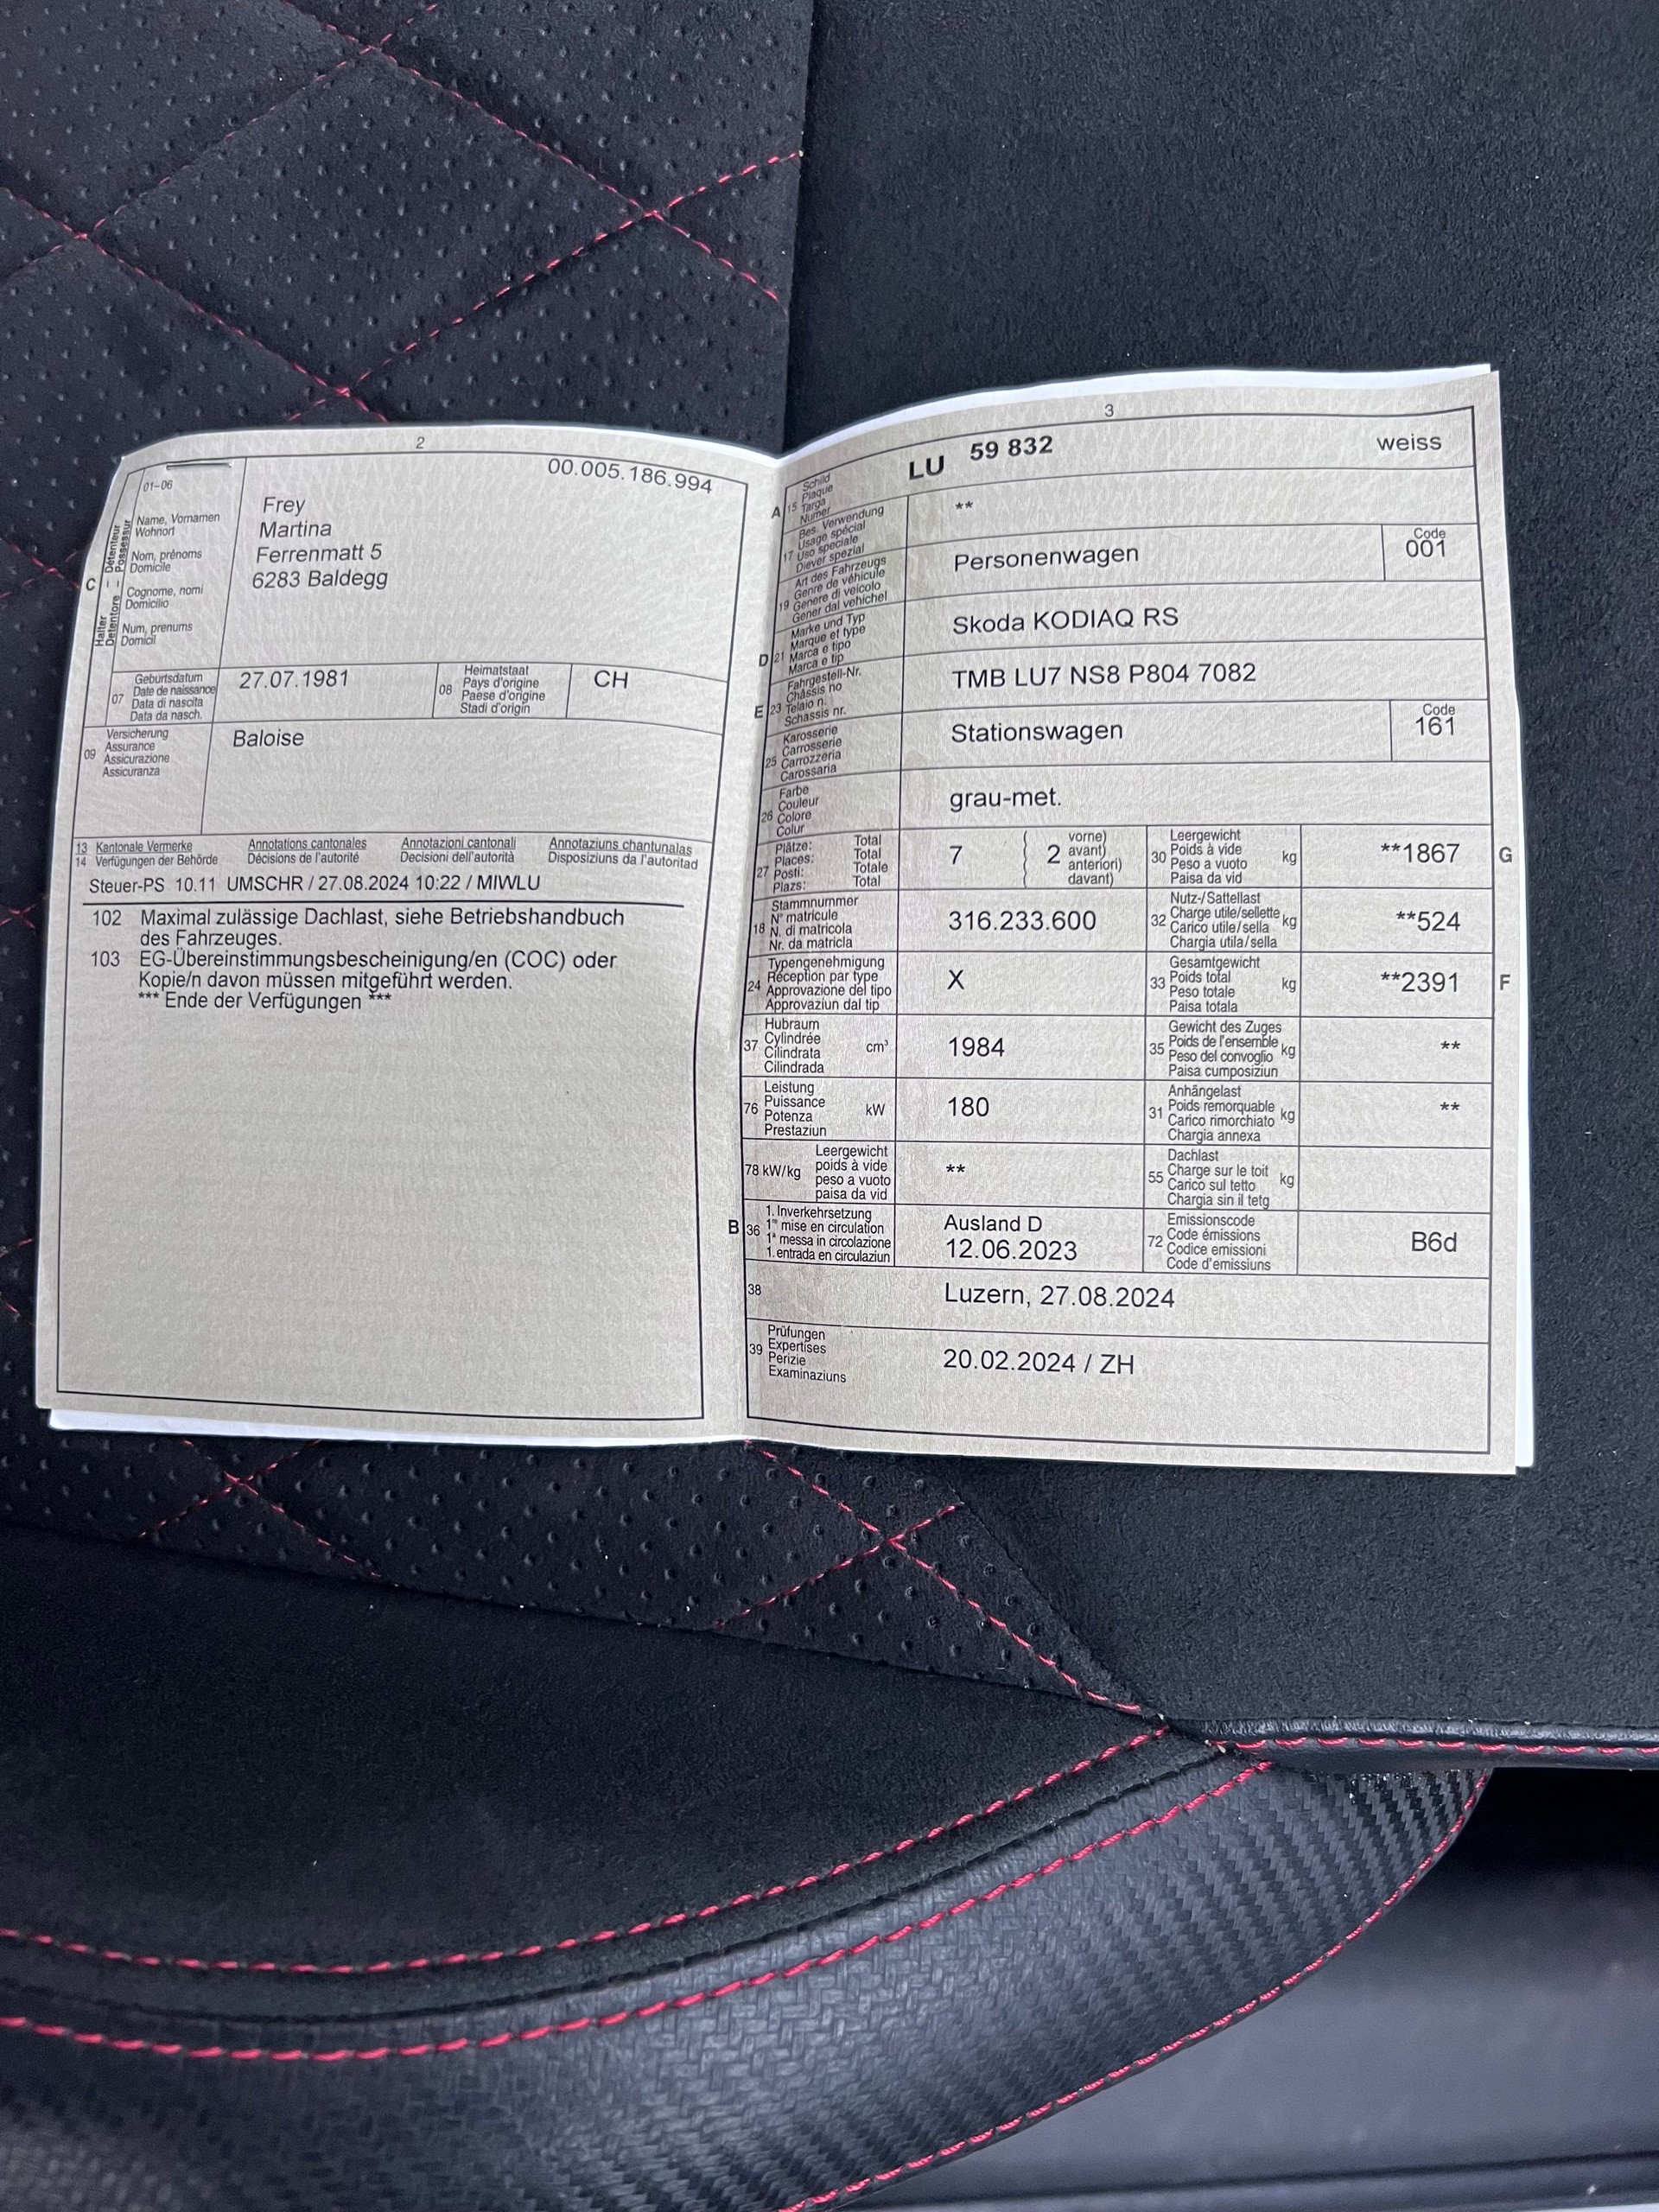 2
00.005.186.994
01–06
C
Halter – Détenteur
Detentore – Possessur
Name, Vornamen
Wohnort
Nom, prénoms
Domicile
Cognome, nomi
Domicilio
Num, prenums
Domicil
Frey
Martina
Ferrenmatt 5
6283 Baldegg
07
Geburtsdatum
Date de naissance
Data di nascita
Data da nasch.
27.07.1981
08
Heimatstaat
Pays d'origine
Paese d'origine
Stadi d'origin
CH
09
Versicherung
Assurance
Assicurazione
Assicuranza
Baloise
13 Kantonale Vermerke Annotations cantonales Annotazioni cantonali Annotaziuns chantunalas
14 Verfügungen der Behörde Décisions de l'autorité Decisioni dell'autorità Disposiziuns da l'autoritad
Steuer-PS 10.11 UMSCHR / 27.08.2024 10:22 / MIWLU
102 Maximal zulässige Dachlast, siehe Betriebshandbuch
des Fahrzeuges.
103 EG-Übereinstimmungsbescheinigung/en (COC) oder
Kopie/n davon müssen mitgeführt werden.
*** Ende der Verfügungen ***
3
A 15
Schild
Plaque
Targa
Numer
LU 59 832 weiss
17
Bes. Verwendung
Usage spécial
Uso speciale
Diever spezial
**
19
Art des Fahrzeugs
Genre de véhicule
Genere di veicolo
Gener dal vehichel
Personenwagen
Code
001
D 21
Marke und Typ
Marque et type
Marca e tipo
Marca e tip
Skoda KODIAQ RS
E 23
Fahrgestell-Nr.
Châssis no
Telaio n.
Schassis nr.
TMB LU7 NS8 P804 7082
25
Karosserie
Carrosserie
Carrozzeria
Carossaria
Stationswagen
Code
161
26
Farbe
Couleur
Colore
Colur
grau-met.
27
Plätze: Total
Places: Total
Posti: Totale
Plazs: Total
7
2
( vorne)
( avant)
( anteriori)
( davant)
30
Leergewicht
Poids à vide
Peso a vuoto
Paisa da vid
kg
**1867
G
18
Stammnummer
N° matricule
N. di matricola
Nr. da matricla
316.233.600
32
Nutz-/Sattellast
Charge utile/sellette
Carico utile/sella
Chargia utila/sella
kg
**524
24
Typengenehmigung
Réception par type
Approvazione del tipo
Approvaziun dal tip
X
33
Gesamtgewicht
Poids total
Peso totale
Paisa totala
kg
**2391
F
37
Hubraum
Cylindrée
Cilindrata
Cilindrada
cm³
1984
35
Gewicht des Zuges
Poids de l'ensemble
Peso del convoglio
Paisa cumposiziun
kg
**
76
Leistung
Puissance
Potenza
Prestaziun
kW
180
31
Anhängelast
Poids remorquable
Carico rimorchiato
Chargia annexa
kg
**
78 kW/kg
Leergewicht
poids à vide
peso a vuoto
paisa da vid
**
55
Dachlast
Charge sur le toit
Carico sul tetto
Chargia sin il tetg
kg
B 36
1. Inverkehrsetzung
1re mise en circulation
1a messa in circolazione
1. entrada en circulaziun
Ausland D
12.06.2023
72
Emissionscode
Code émissions
Codice emissioni
Code d'emissiuns
B6d
38
Luzern, 27.08.2024
39
Prüfungen
Expertises
Perizie
Examinaziuns
20.02.2024 / ZH